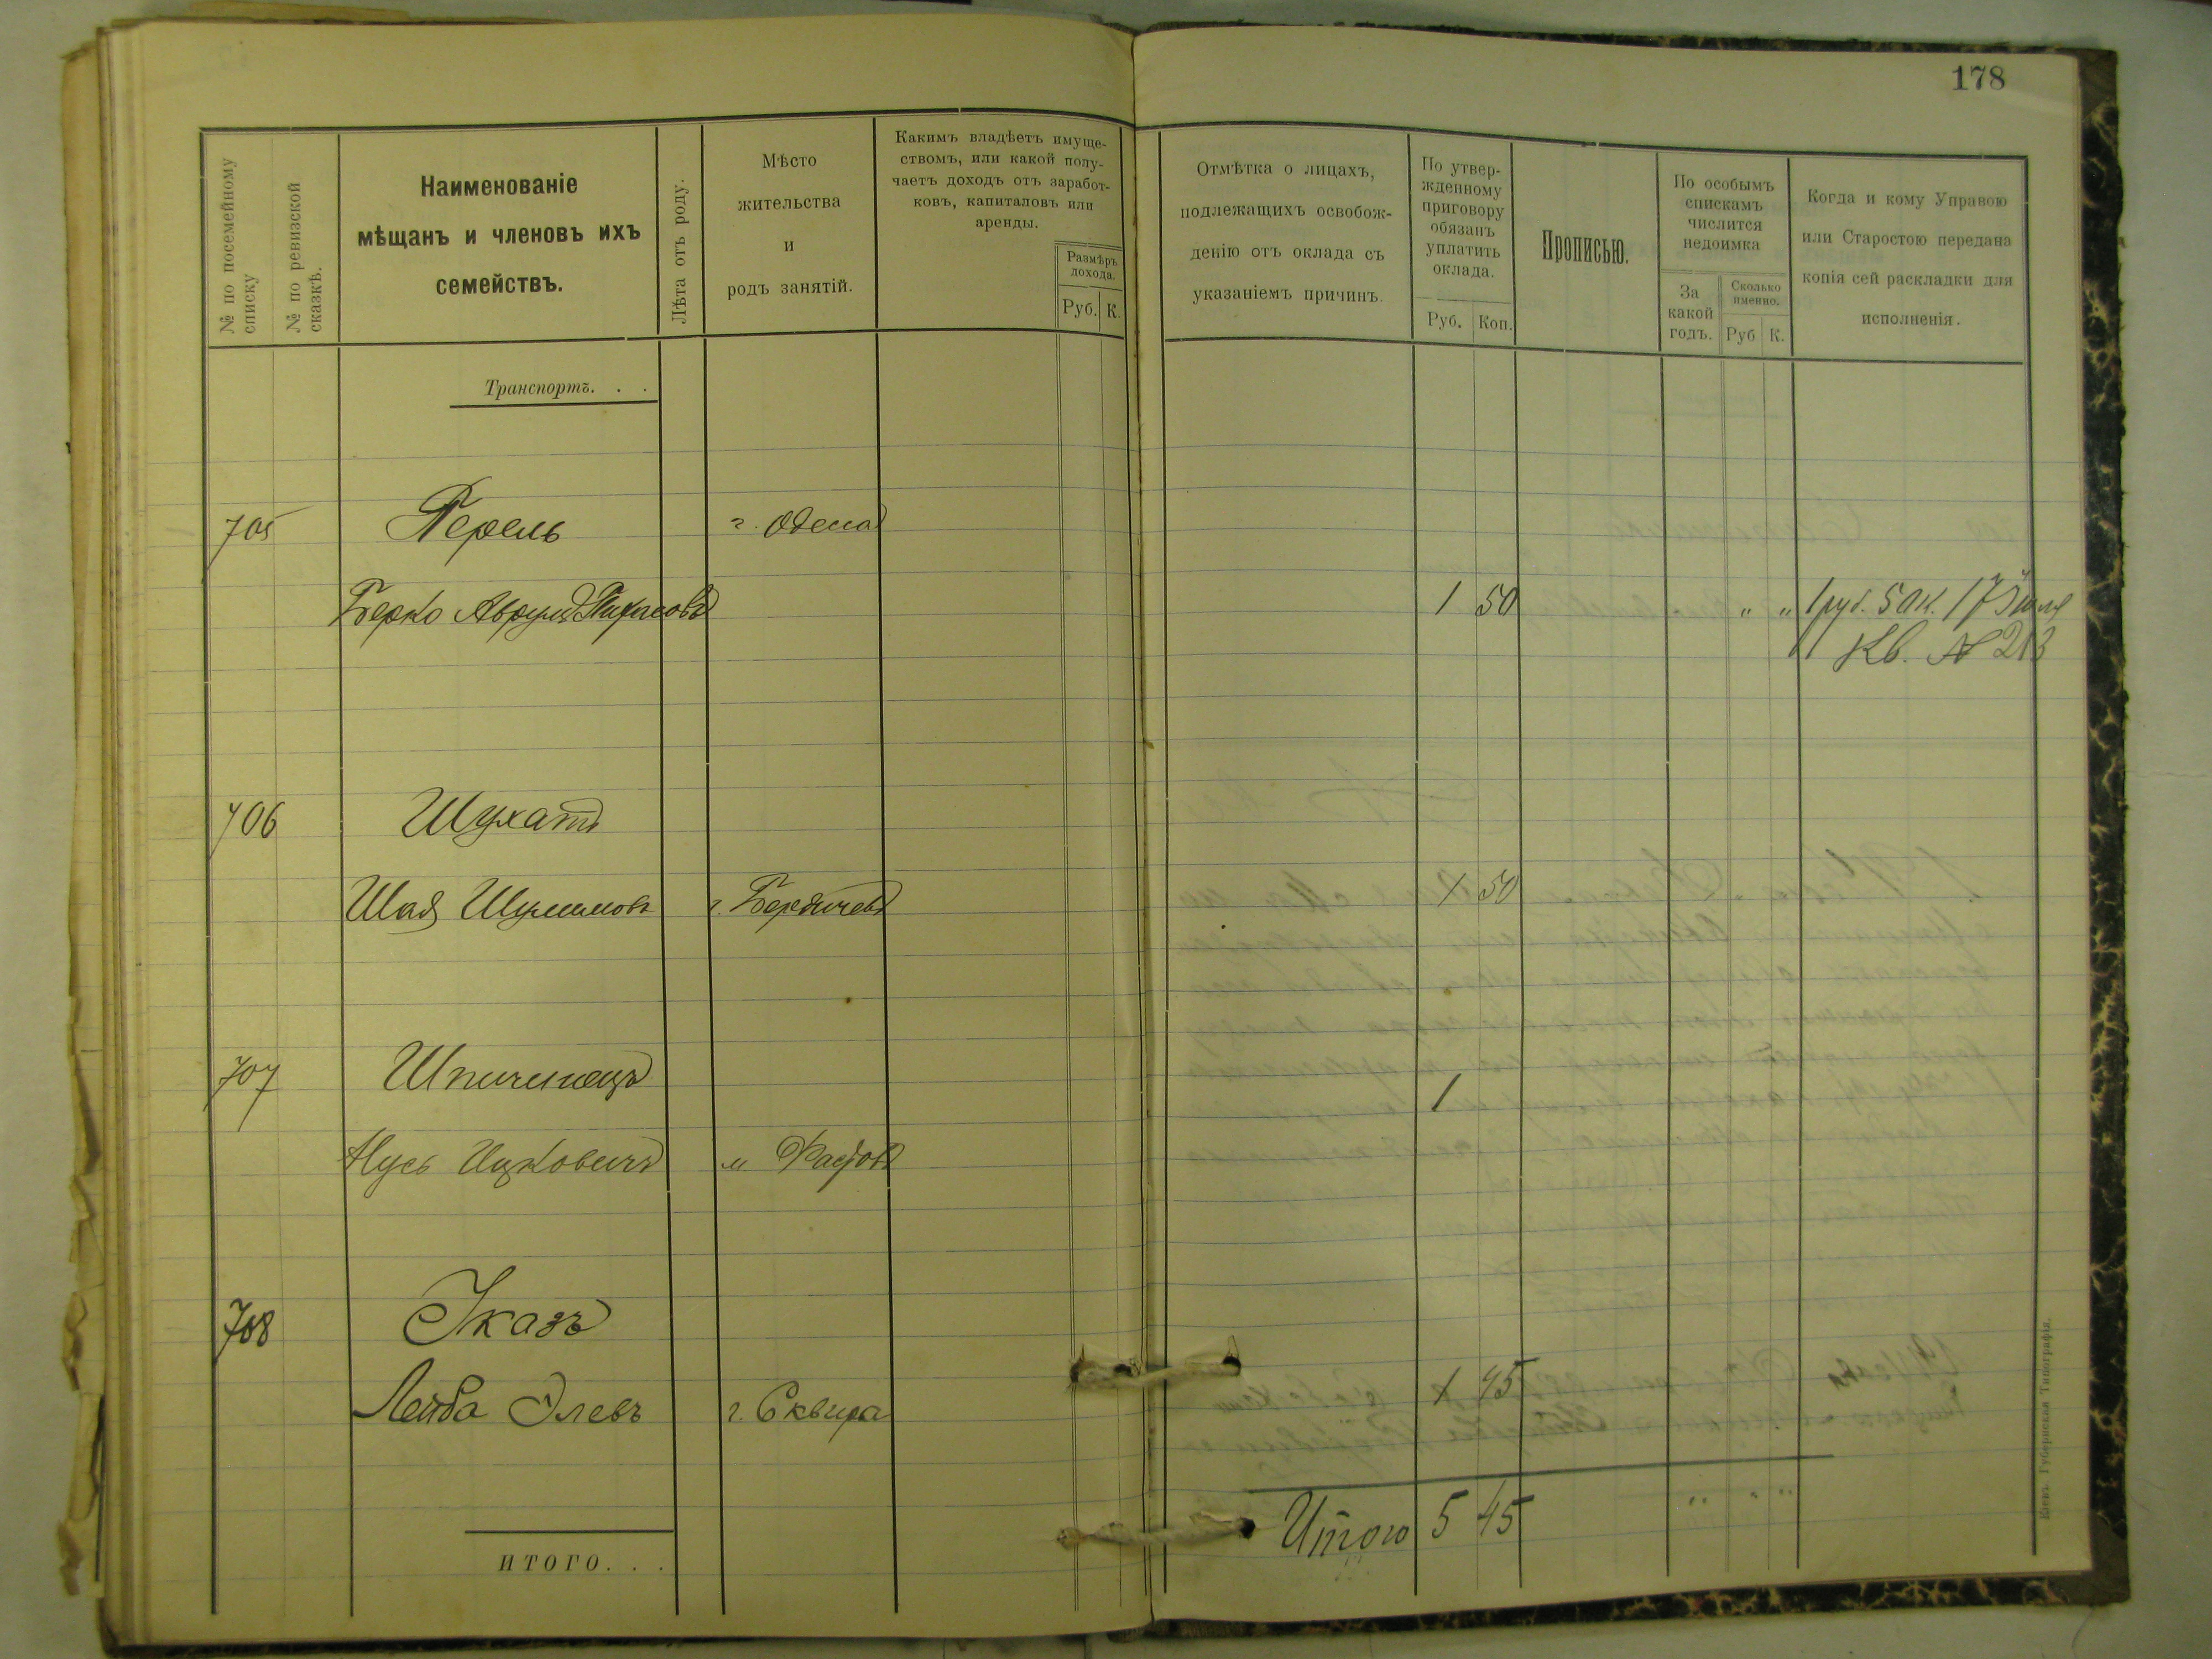 178
№ по посемейному списку
№ по ревизской сказкѣ.
Наименованіе
мѣщанъ и членовъ ихъ
семействъ.
Лѣта отъ роду.
Мѣсто
жительства
и
родъ занятій.
Какимъ владѣетъ имуще-
ствомъ, или какой полу-
чаетъ доходъ отъ заработ-
ковъ, капиталовъ или
аренды.
Размѣръ
дохода.
Руб. К.
Отмѣтка о лицахъ,
подлежащихъ освобож-
денію отъ оклада съ
указаніемъ причинъ.
По утвер-
жденному
приговору
обязанъ
уплатить
оклада.
Руб. Коп.
Прописью.
По особымъ
спискамъ
числится
недоимка
За
какой
годъ.
Сколько
именно.
Руб К.
Когда и кому Управою
или Старостою передана
копія сей раскладки для
исполненія.
Транспортъ. . .
705 Перель г. Одесса
Берко Аврумъ 1 50 " " 1 руб. 50 к. 17 Іюля
Кв. № 213
706 Шухатъ
Шая Шулимовъ г. Бердичевъ 1 50
707 Шпичинецъ 1
Нусь Ицковичъ м Фастовъ
708 Указъ
Лейба Элевъ г. Сквира 1 45
Итого 5 45 " " "
ИТОГО. . .
Кіевъ. Губернская Типографія.